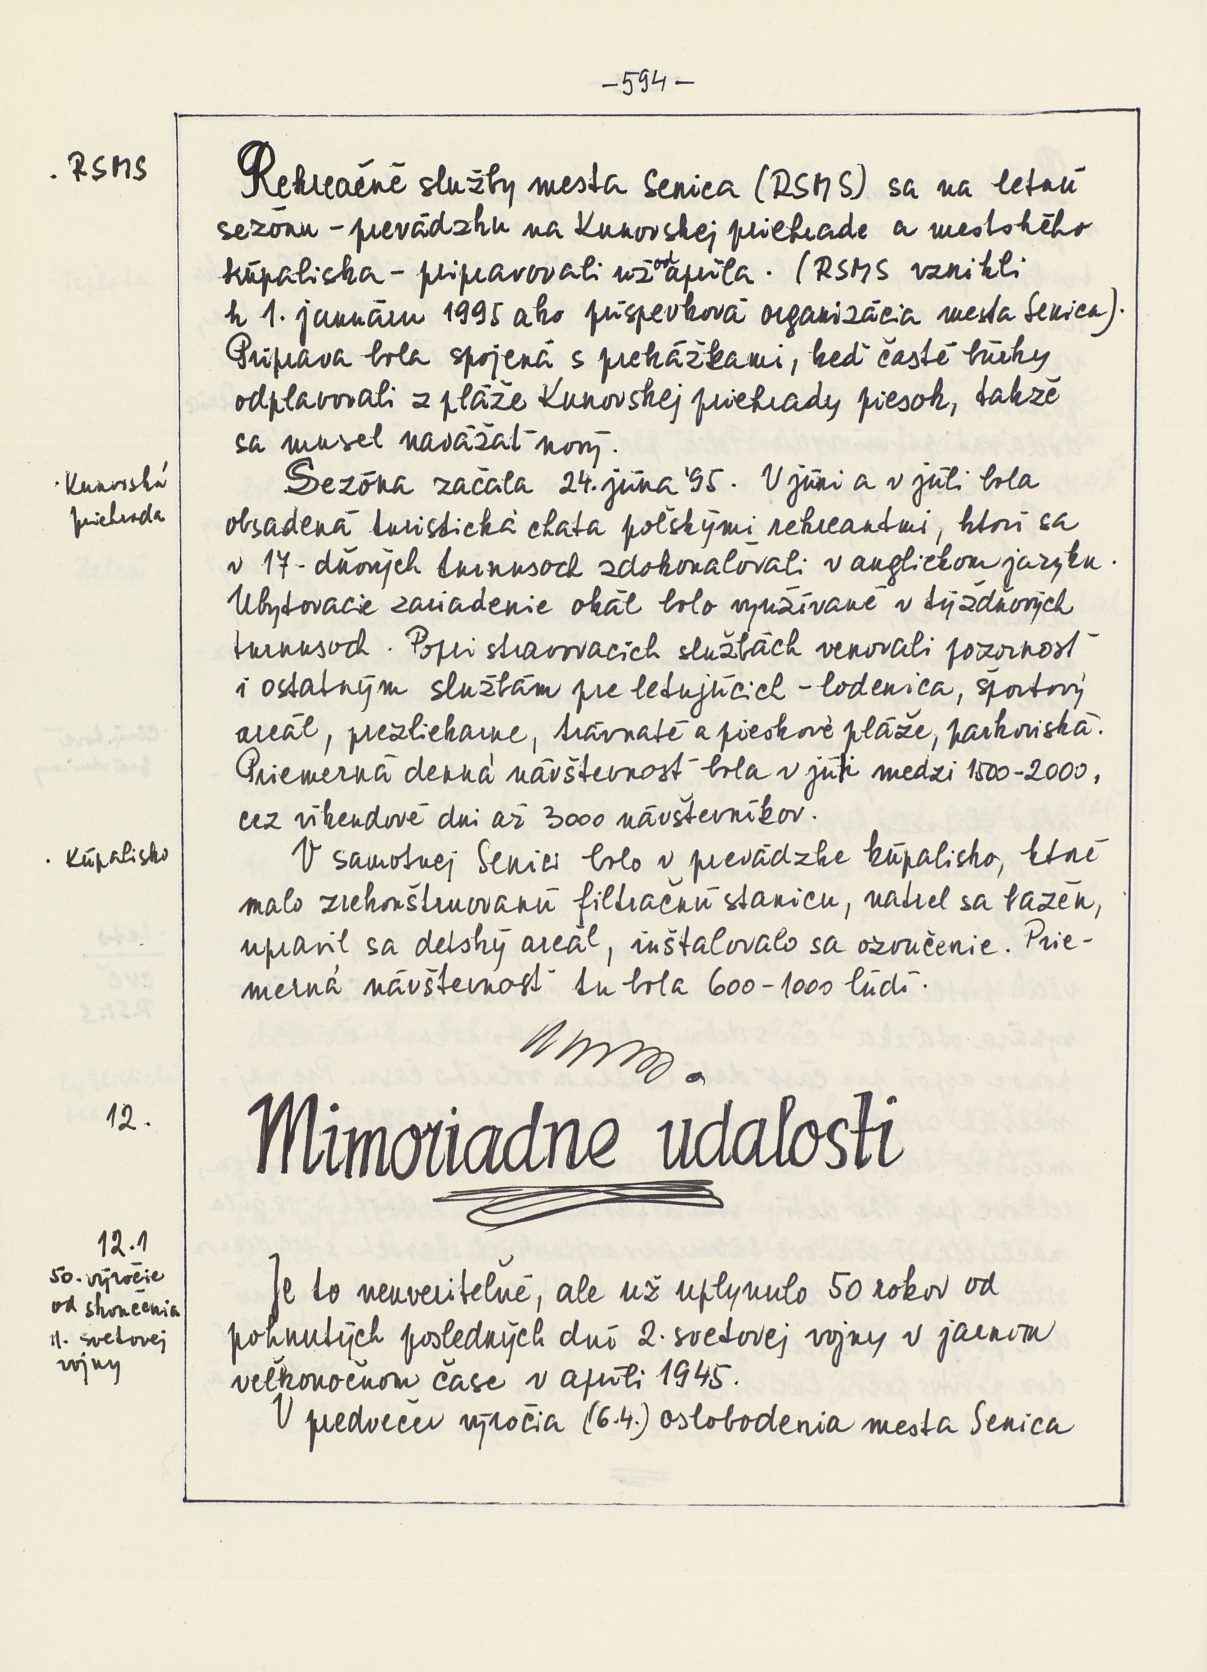 -594-
. RSMS
Rekreačné služby mesta Senica (RSMS) sa na letnú
sezónu - prevádzku na Kunovskej priehrade a mestského
kúpaliska - pripravovali už od apríla. (RSMS vznikli
k 1. januáru 1995 ako príspevková organizácia mesta Senica).
Príprava bola spojená s prekážkami, keď časté búrky
odplavovali z pláže Kunovskej priehrady piesok, takže
sa musel navážať nový.
. Kunovská
priehrada
Sezóna začala 24. júna '95. V júni a v júli bola
obsadená turistická chata poľskými rekreantmi, ktorí sa
v 17-dňových turnusoch zdokonaľovali v anglickom jazyku.
Ubytovacie zariadenie okál bolo využívané v týždňových
turnusoch. Popri stravovacích službách venovali pozornosť
i ostatným službám pre letujúcich - lodenica, športový
areál, prezliekarne, trávnaté a pieskové pláže, parkoviská.
Priemerná denná návštevnosť bola v júli medzi 1500-2000,
cez víkendové dni až 3000 návštevníkov.
. Kúpalisko
V samotnej Senici bolo v prevádzke kúpalisko, ktoré
malo zrekonštruovanú filtračnú stanicu, natrel sa bazén,
upravil sa detský areál, inštalovalo sa ozvučenie. Prie-
merná návštevnosť tu bola 600-1000 ľudí.
12.
Mimoriadne udalosti
12.1
50. výročie
od skončenia
II. svetovej
vojny
Je to neuveriteľné, ale už uplynulo 50 rokov od
pohnutých posledných dní 2. svetovej vojny v jarnom
veľkonočnom čase v apríli 1945.
V predvečer výročia (6.4.) oslobodenia mesta Senica